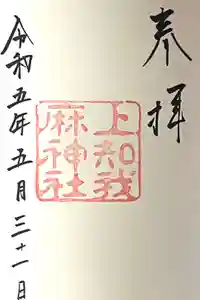 奉拝
上知我
麻神社
令和五年五月三十一日